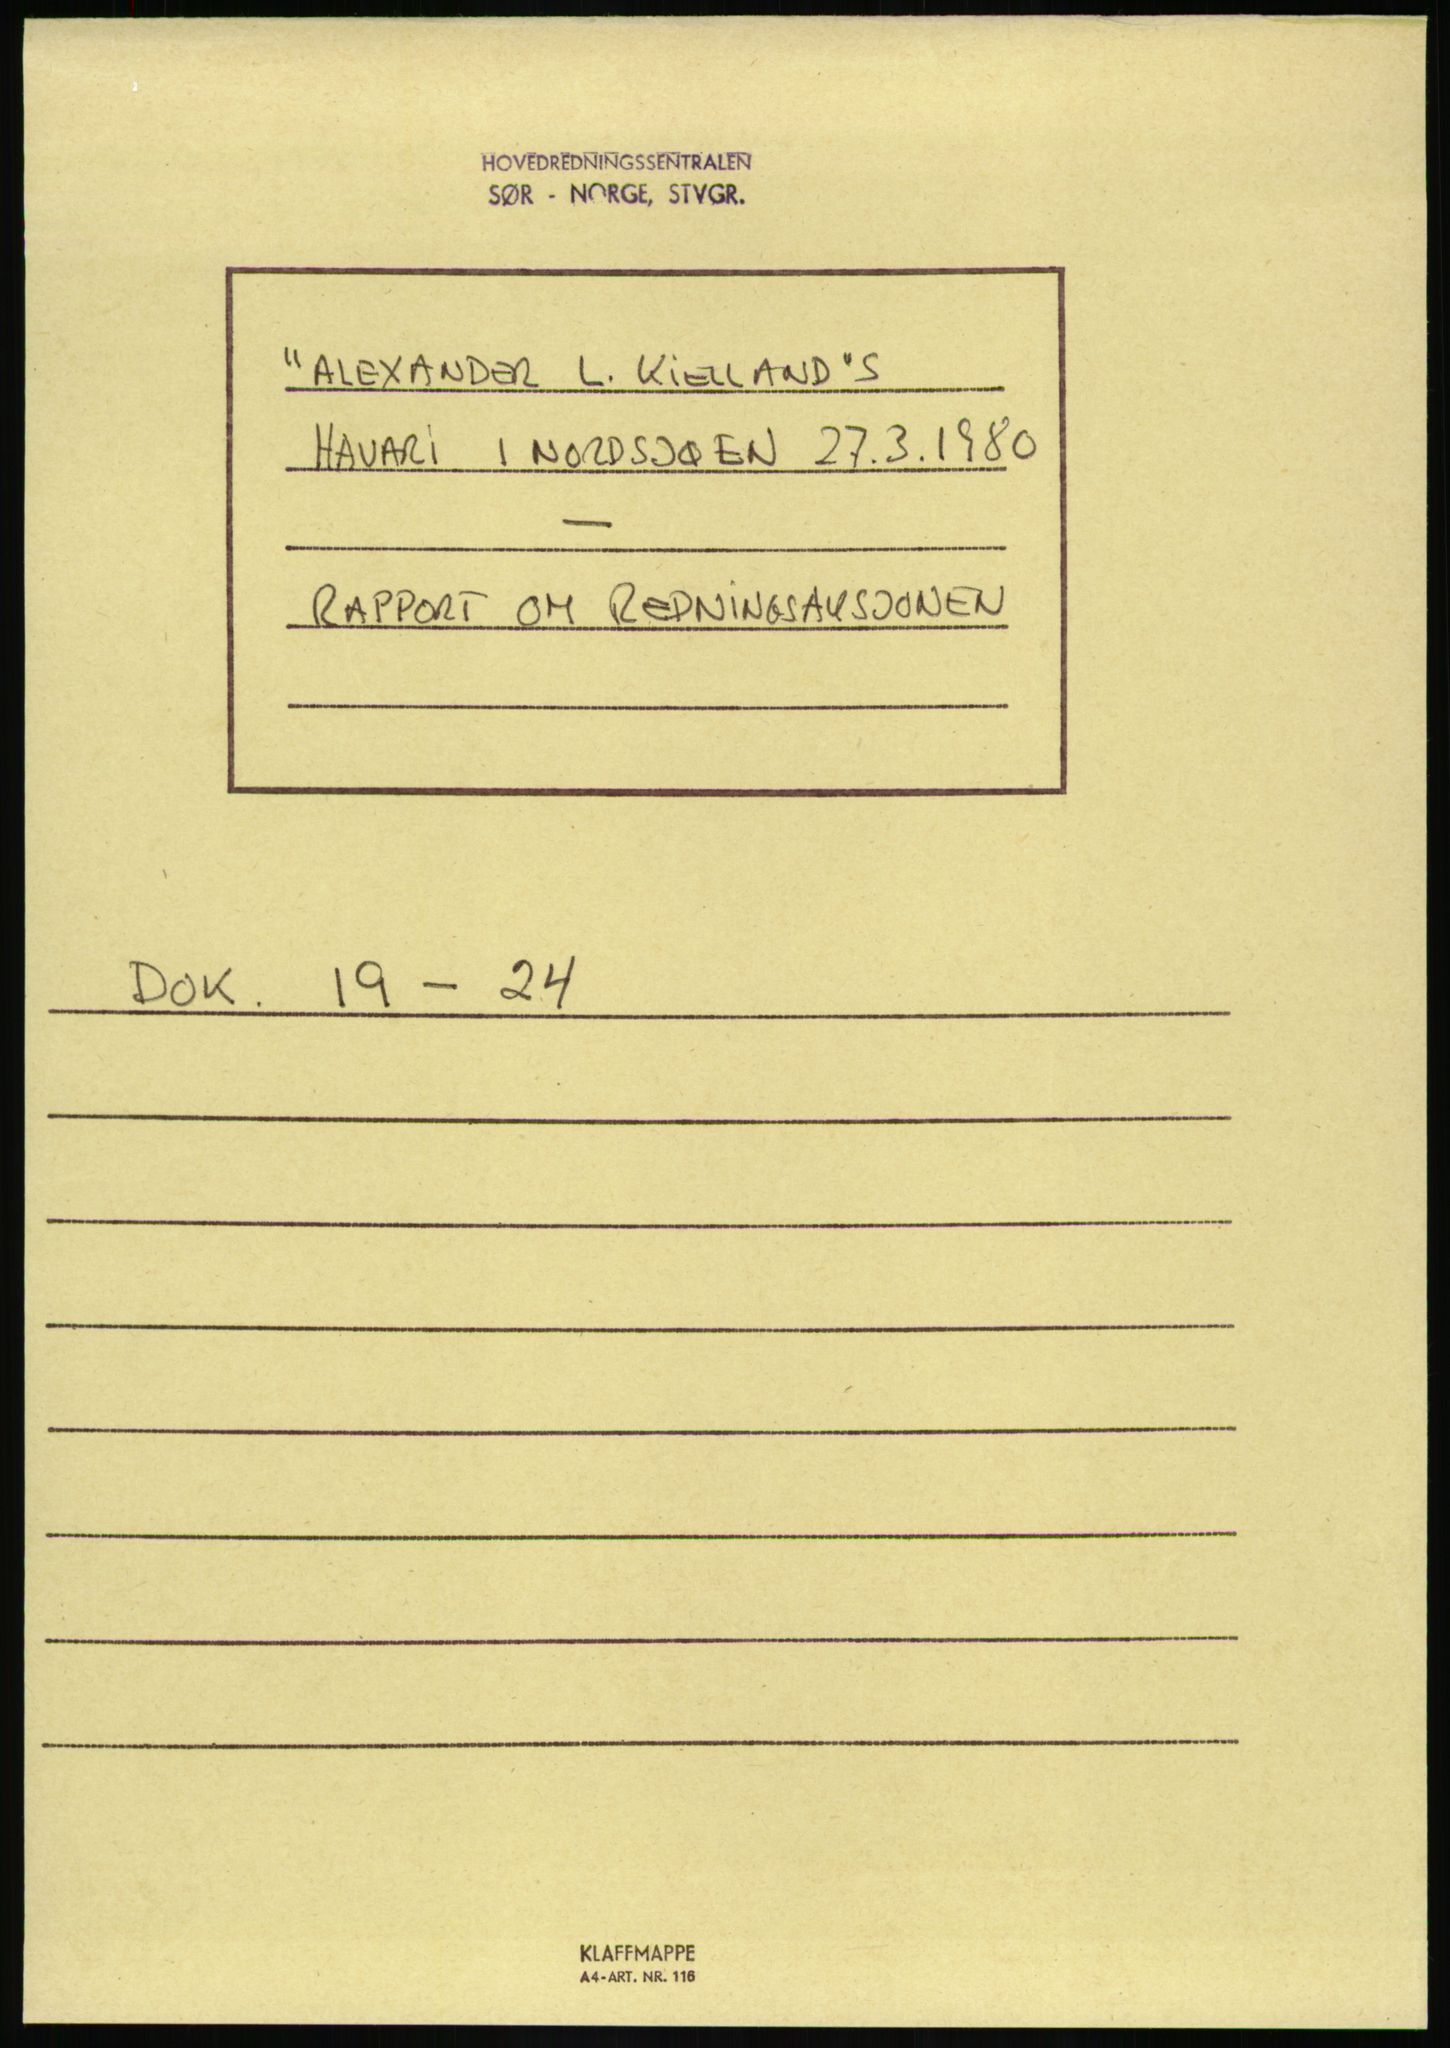 HOVEDREDNINGSSENTRALEN
SØR - NORGE, STVGR.
"ALEXANDER L. KIELLAND"S
HAVARI I NORDSJØEN 27.3.1980
—
RAPPORT OM REDNINGSAKSJONEN
DOK. 19 - 24
KLAFFMAPPE
A4-ART. NR. 116